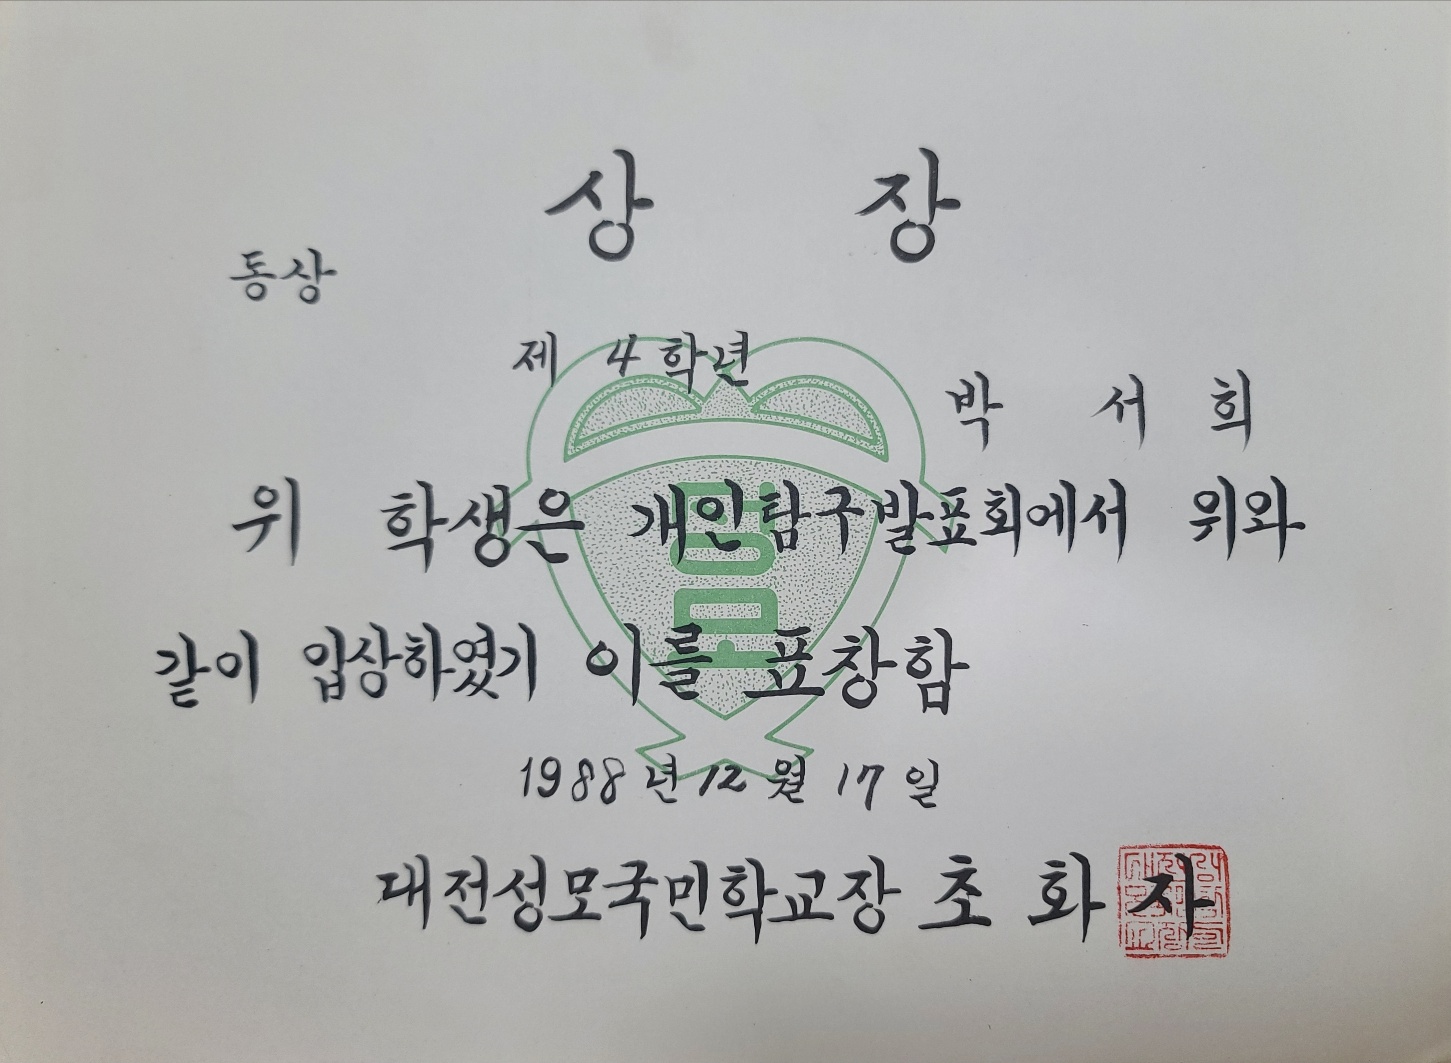 상 장
동상
제 4 학년
박 서 희
위 학생은 개인탐구발표회에서 위와
같이 입상하였기 이를 표창함
1988 년 12 월 17 일
대전성모국민학교장 초 화 자